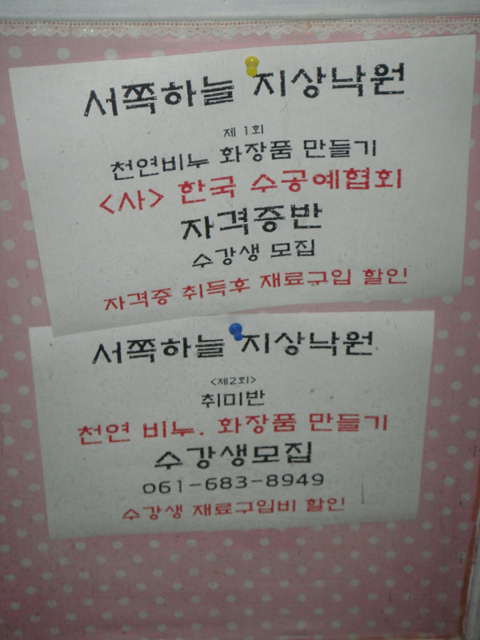 서쪽하늘 지상낙원
제 1회
천연비누 화장품 만들기
<사> 한국 수공예협회
자격증반
수강생 모집
자격증 취득후 재료구입 할인
서쪽하늘 지상낙원
<제2회>
취미반
천연 비누. 화장품 만들기
수강생모집
061-683-8949
수강생 재료구입비 할인